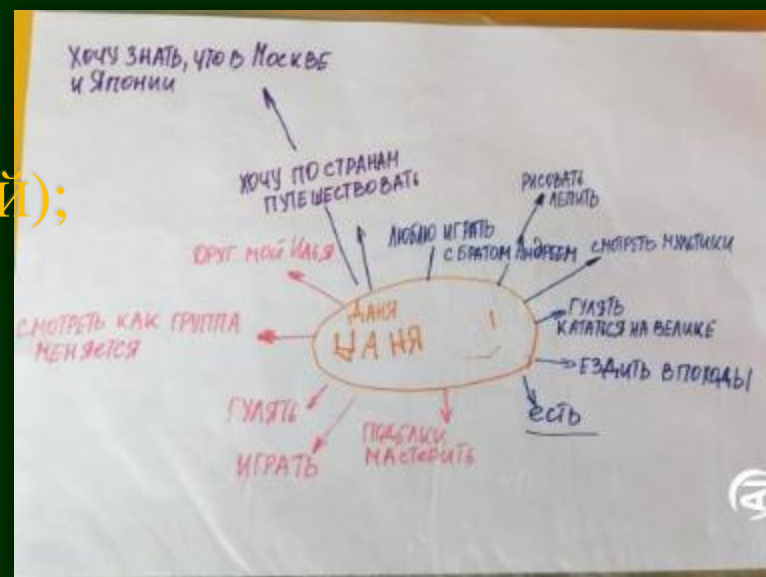 й);
ХОЧУ ЗНАТЬ, ЧТО В МОСКВЕ
И ЯПОНИИ
ХОЧУ ПО СТРАНАМ
ПУТЕШЕСТВОВАТЬ
РИСОВАТЬ
ЛЕПИТЬ
ЛЮБЛЮ ИГРАТЬ
С БРАТОМ АНДРЕЕМ
СМОТРЕТЬ МУЛЬТИКИ
ДРУГ МОЙ ИЛЬЯ
ДАНЯ
ДАНЯ
ГУЛЯТЬ
КАТАТЬСЯ НА ВЕЛИКЕ
СМОТРЕТЬ КАК ГРУППА
МЕНЯЕТСЯ
ЕЗДИТЬ В ПОХОДЫ
ЕСТЬ
ГУЛЯТЬ
ИГРАТЬ
ПОДЕЛКИ
МАСТЕРИТЬ